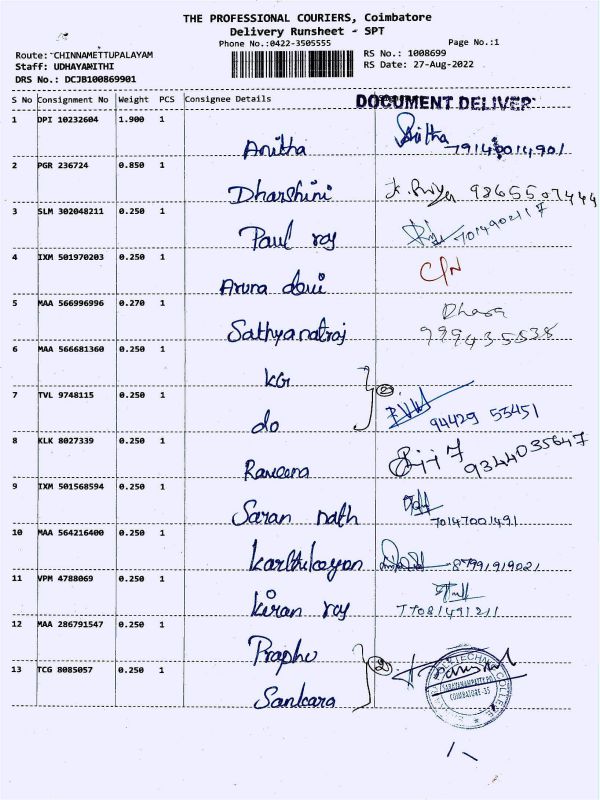 THE PROFESSIONAL COURIERS, Coimbatore
Delivery Runsheet - SPT
Phone No.:0422-3505555 Page No.:1
Route: CHINNAMETTUPALAYAM RS No.: 1008699
Staff: UDHAYANITHI RS Date: 27-Aug-2022
DRS No.: DCJB100869901
S No Consignment No Weight PCS Consignee Details DOCUMENT DELIVER
1 DPI 10232604 1.900 1
Anitha Anitha
2 PGR 236724 0.850 1
Dharshini 9865507444
3 SLM 302048211 0.250 1
Paul roy 7014902117
4 IXM 501970203 0.250 1 C/N
Aruna devi
5 MAA 566996996 0.270 1 Dhara
Sathyanatraj 999435538
6 MAA 566681360 0.250 1
KG 2
7 TVL 9748115 0.250 1
do 94429 55451
8 KLK 8027339 0.250 1
Raveena 9344035647
9 IXM 501568594 0.250 1
Saran nath 70147001491
10 MAA 564216400 0.250 1
Karthikeyan 87991919021
11 VPM 4788069 0.250 1
Kiran roy 77081491211
12 MAA 286791547 0.250 1
Praphu 2
13 TCG 8085057 0.250 1
Sankara
SARAVANAMPATTY PO
COIMBATORE-35
COLLEGE